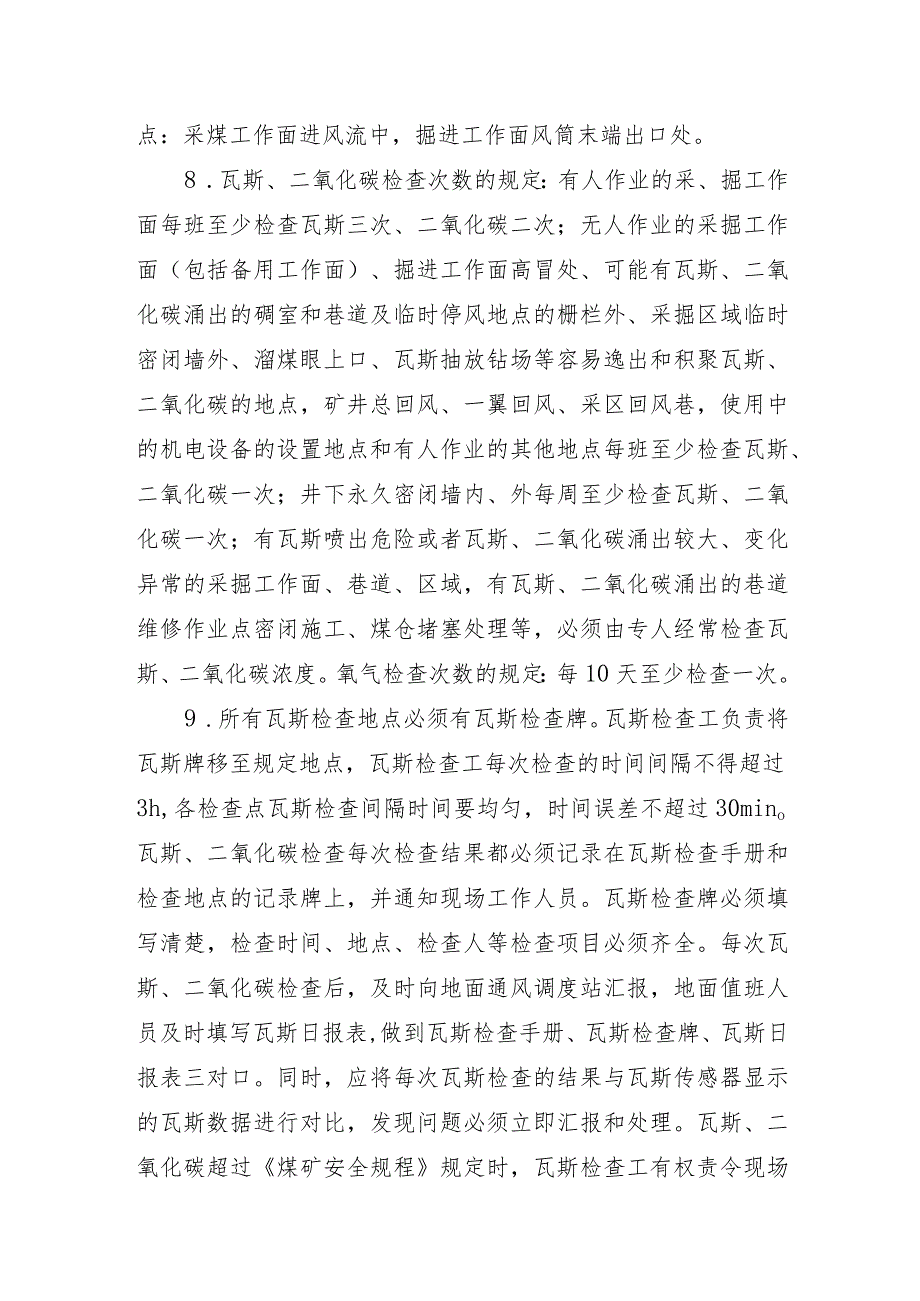 点：采煤工作面进风流中，掘进工作面风筒末端出口处。
8．瓦斯、二氧化碳检查次数的规定：有人作业的采、掘工作
面每班至少检查瓦斯三次、二氧化碳二次；无人作业的采掘工作
面（包括备用工作面）、掘进工作面高冒处、可能有瓦斯、二氧
化碳涌出的碉室和巷道及临时停风地点的栅栏外、采掘区域临时
密闭墙外、溜煤眼上口、瓦斯抽放钻场等容易逸出和积聚瓦斯、
二氧化碳的地点，矿井总回风、一翼回风、采区回风巷，使用中
的机电设备的设置地点和有人作业的其他地点每班至少检查瓦斯、
二氧化碳一次；井下永久密闭墙内、外每周至少检查瓦斯、二氧
化碳一次；有瓦斯喷出危险或者瓦斯、二氧化碳涌出较大、变化
异常的采掘工作面、巷道、区域，有瓦斯、二氧化碳涌出的巷道
维修作业点密闭施工、煤仓堵塞处理等，必须由专人经常检查瓦
斯、二氧化碳浓度。氧气检查次数的规定：每10天至少检查一次。
9．所有瓦斯检查地点必须有瓦斯检查牌。瓦斯检查工负责将
瓦斯牌移至规定地点，瓦斯检查工每次检查的时间间隔不得超过
3h,各检查点瓦斯检查间隔时间要均匀，时间误差不超过30min。
瓦斯、二氧化碳检查每次检查结果都必须记录在瓦斯检查手册和
检查地点的记录牌上，并通知现场工作人员。瓦斯检查牌必须填
写清楚，检查时间、地点、检查人等检查项目必须齐全。每次瓦
斯、二氧化碳检查后，及时向地面通风调度站汇报，地面值班人
员及时填写瓦斯日报表,做到瓦斯检查手册、瓦斯检查牌、瓦斯日
报表三对口。同时，应将每次瓦斯检查的结果与瓦斯传感器显示
的瓦斯数据进行对比，发现问题必须立即汇报和处理。瓦斯、二
氧化碳超过《煤矿安全规程》规定时，瓦斯检查工有权责令现场